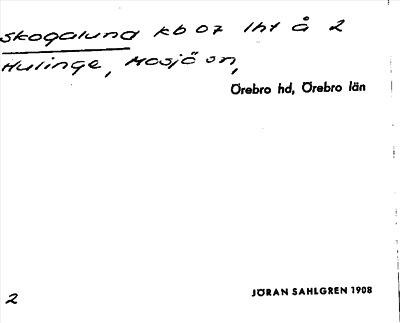 Skogalund kb 07 1ht å 2
Hulinge, Mosjö sn,
Örebro hd, Örebro län
2
JÖRAN SAHLGREN 1908